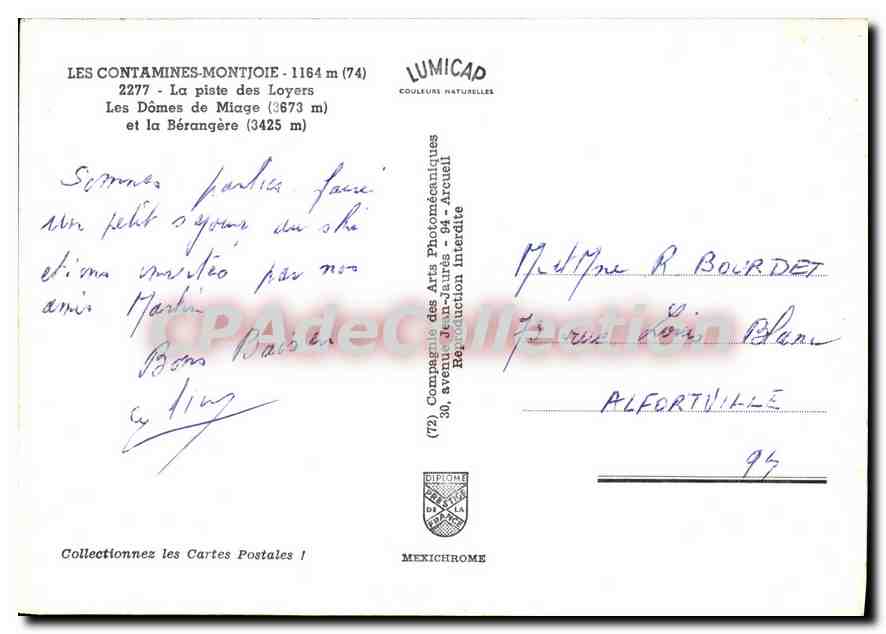 LES CONTAMINES-MONTJOIE - 1164 m (74)
2277 - La piste des Loyers
Les Dômes de Miage (3673 m)
et la Bérangère (3425 m)
LUMICAP
COULEURS NATURELLES
Sommes parties faire
un petit séjour au ski
étions invités par nos
amis Martin
Bons Baisers
(72) Compagnie des Arts Photomécaniques
30, avenue Jean-Jaurès - 94 - Arcueil
Reproduction interdite
M et Mme R BOURDET
73 rue Louis Blanc
ALFORTVILLE
94
CPAdeCollection
DIPLOME
PRESTIGE
DE LA
FRANCE
MEXICHROME
Collectionnez les Cartes Postales !